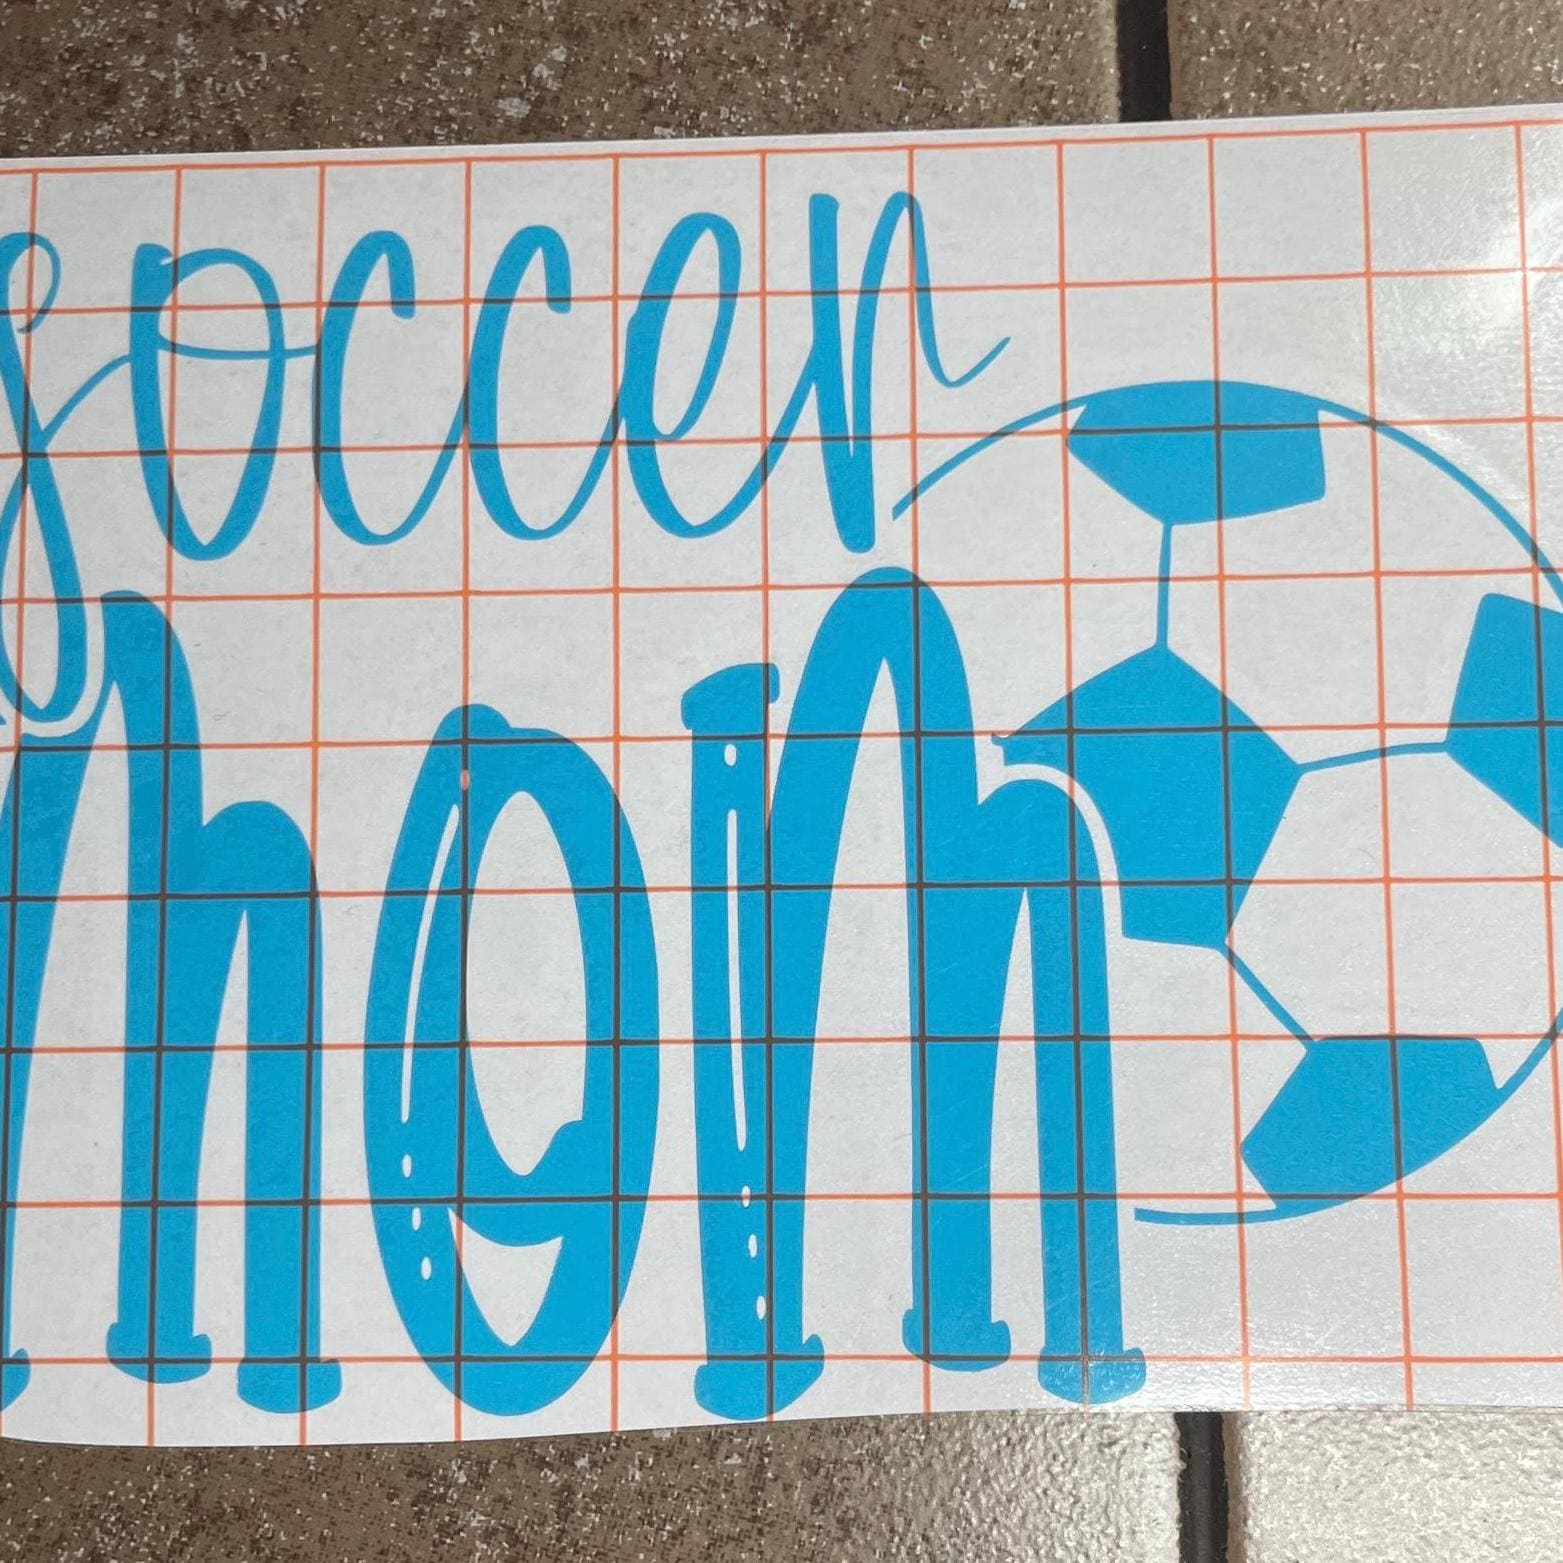 soccer
mom